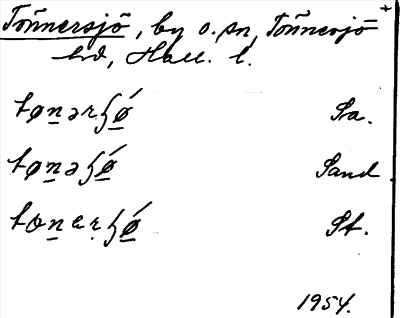 Tönnersjö, by o. sn, Tönnersjö
hd, Hall. l.
tøn̲ərʃǿ̲ Sa.
tøn̲əʃǿ̲ Sand
tɵn̲ɐrʃǿ̲ St.
1954.